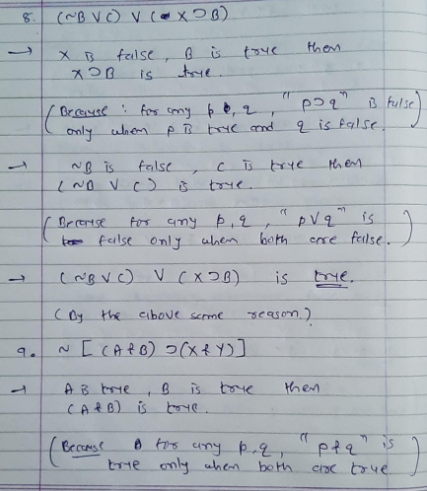 8. (~B ∨ C) ∨ (X ⊃ B)
→ X is false, B is true then
X ⊃ B is true.
(Because : for any p, q, "p⊃q" is false
only when p is true and q is false.)
→ ~B is false, C is true then
(~B ∨ C) is true.
(Because for any p, q, "p∨q" is
false only when both are false.)
→ (~B ∨ C) ∨ (X ⊃ B) is true.
(By the above same reason.)
9. ~ [(A & B) ⊃ (X & Y)]
→ A is true, B is true then
(A & B) is true.
(Because for any p, q, "p & q" is
true only when both are true)